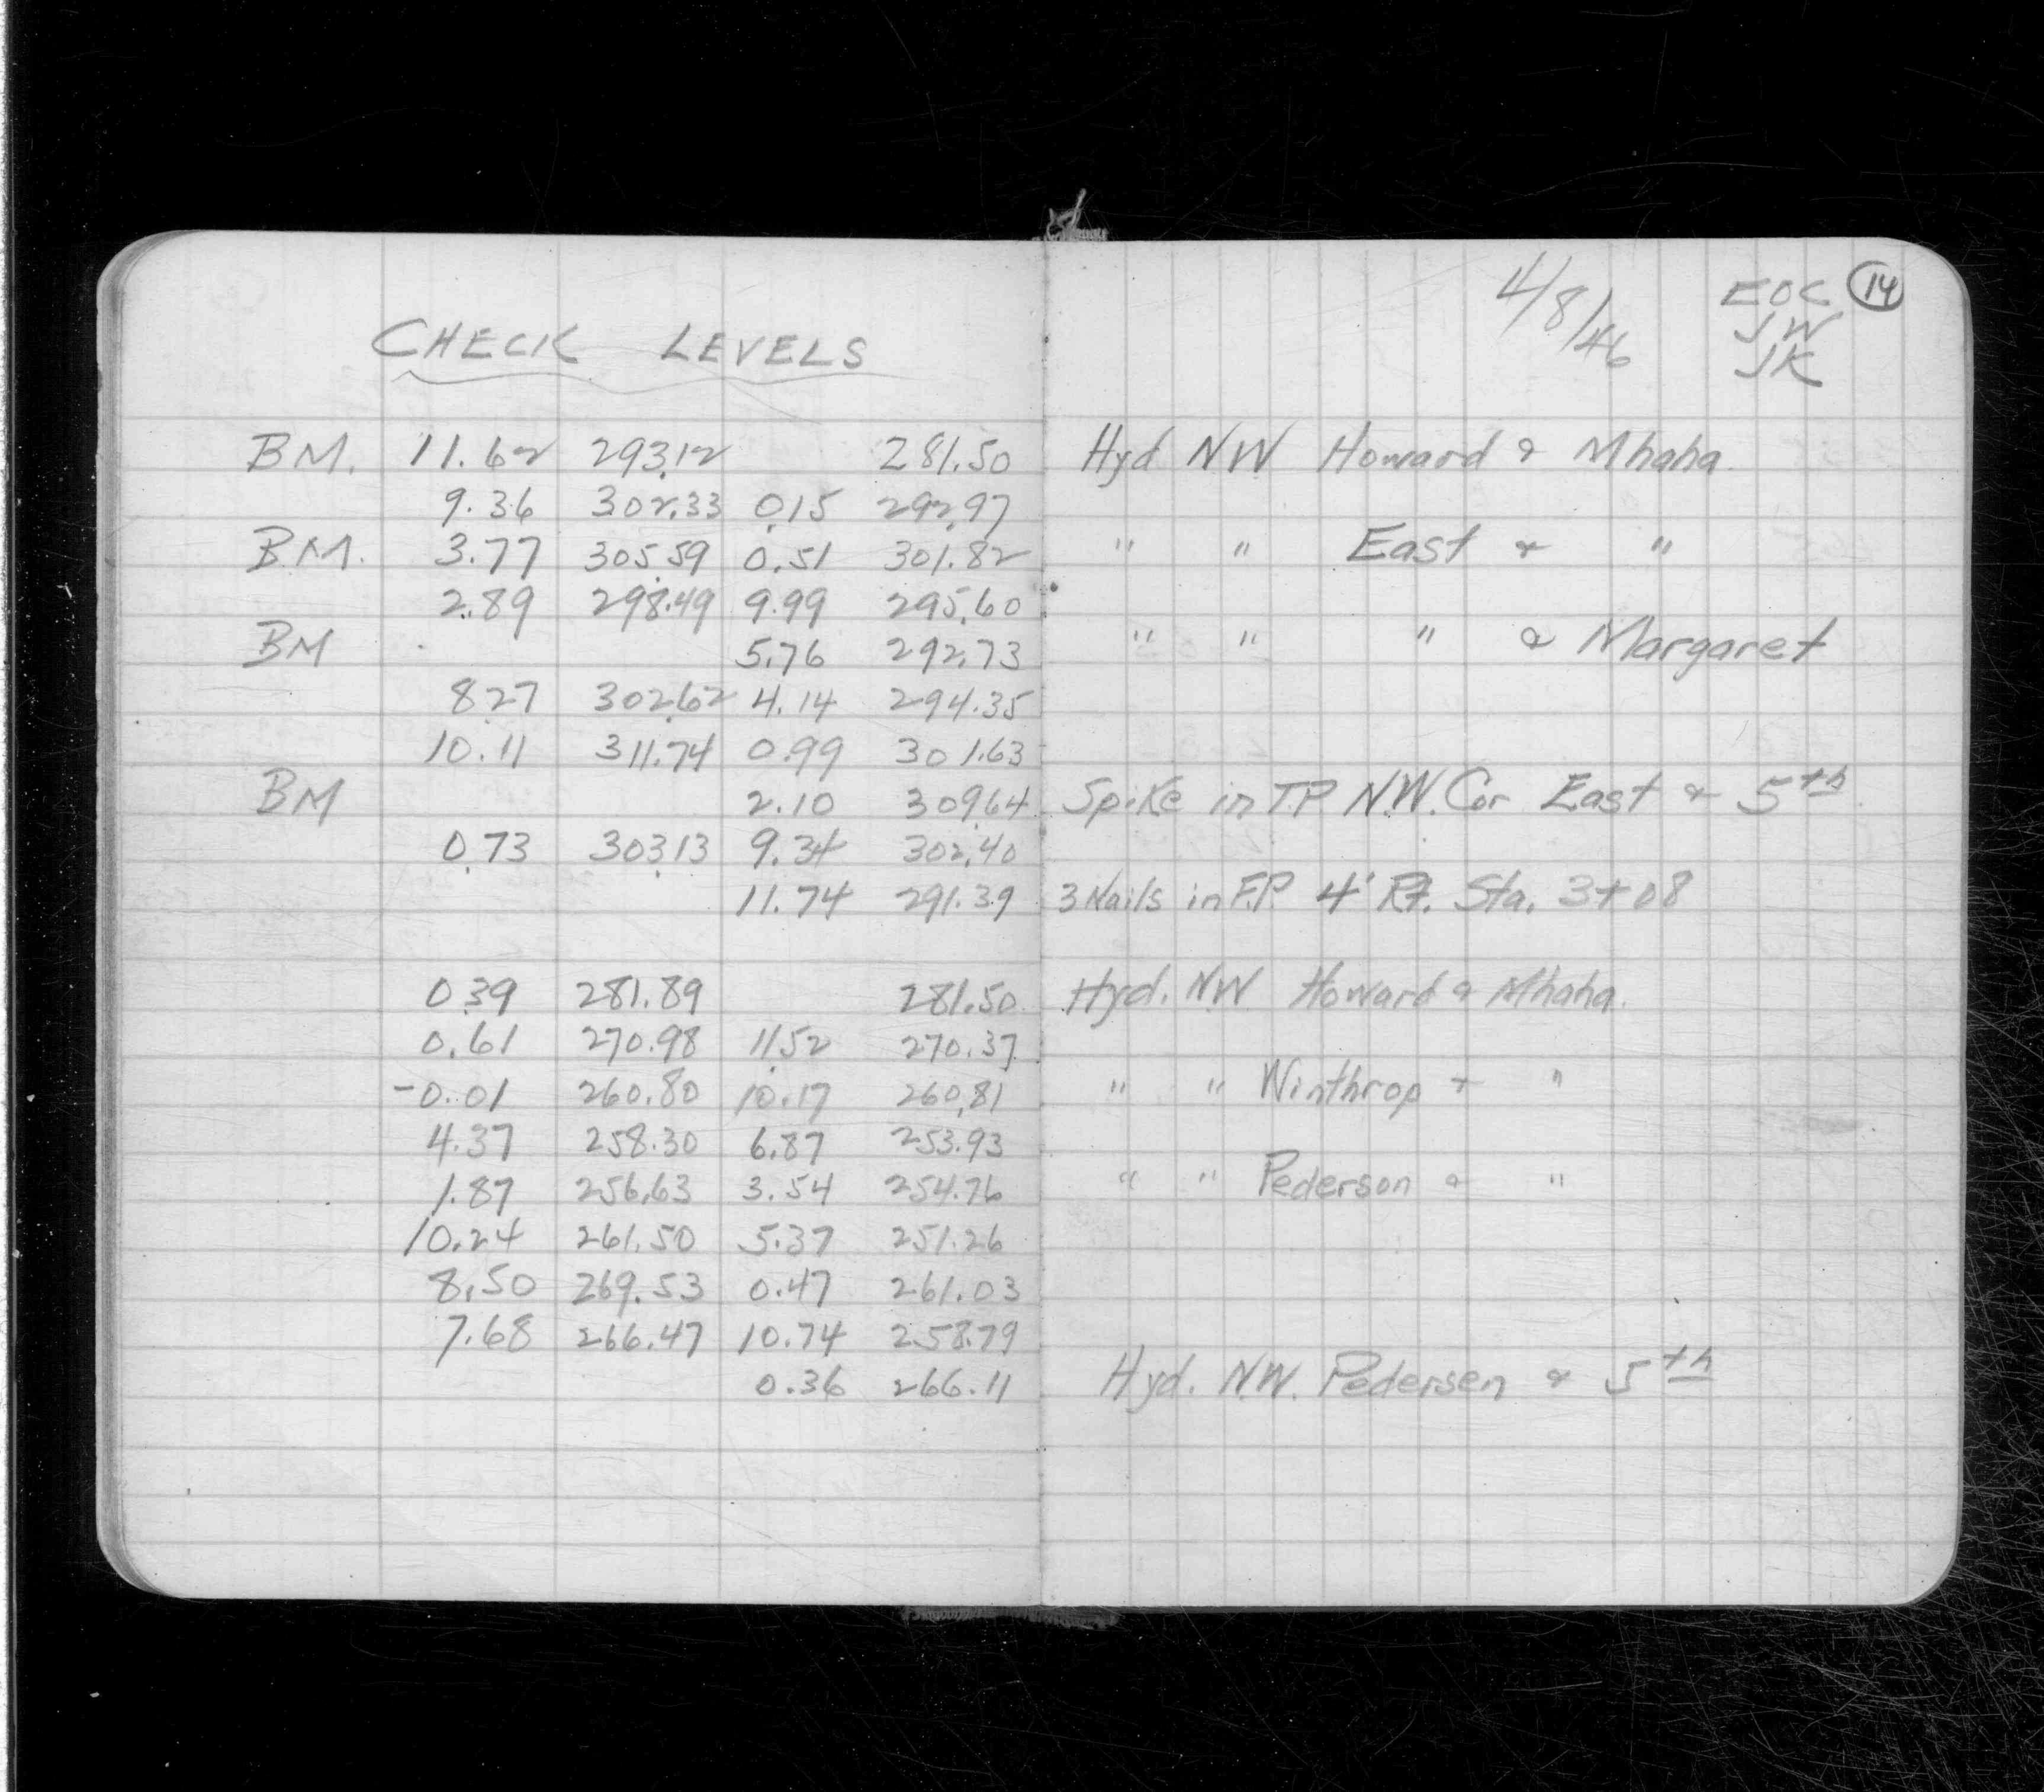 4/8/46 EOC 14
JW
JK
CHECK LEVELS
BM. 11.62 293.12 281.50 Hyd NW Howard & Mhaha.
9.36 302.33 0.15 292.97
BM. 3.77 305.59 0.51 301.82 " " East & "
2.89 298.49 9.99 295.60
BM 5.76 292.73 " " " & Margaret
8.27 302.62 4.14 294.35
10.11 311.74 0.99 301.63
BM 2.10 309.64 Spike in T.P. N.W. Cor East & 5th
0.73 303.13 9.34 302.40
11.74 291.39 3 Nails in F.P. 4' Rt. Sta. 3+08
0.39 281.89 281.50 Hyd. NW Howard & Mhaha.
0.61 270.98 11.52 270.37
-0.01 260.80 10.17 260.81 " " Winthrop + "
4.37 258.30 6.87 253.93
1.87 256.63 3.54 254.76 " " Pederson & "
10.24 261.50 5.37 251.26
8.50 269.53 0.47 261.03
7.68 266.47 10.74 258.79
0.36 266.11 Hyd. N.W. Pedersen & 5th